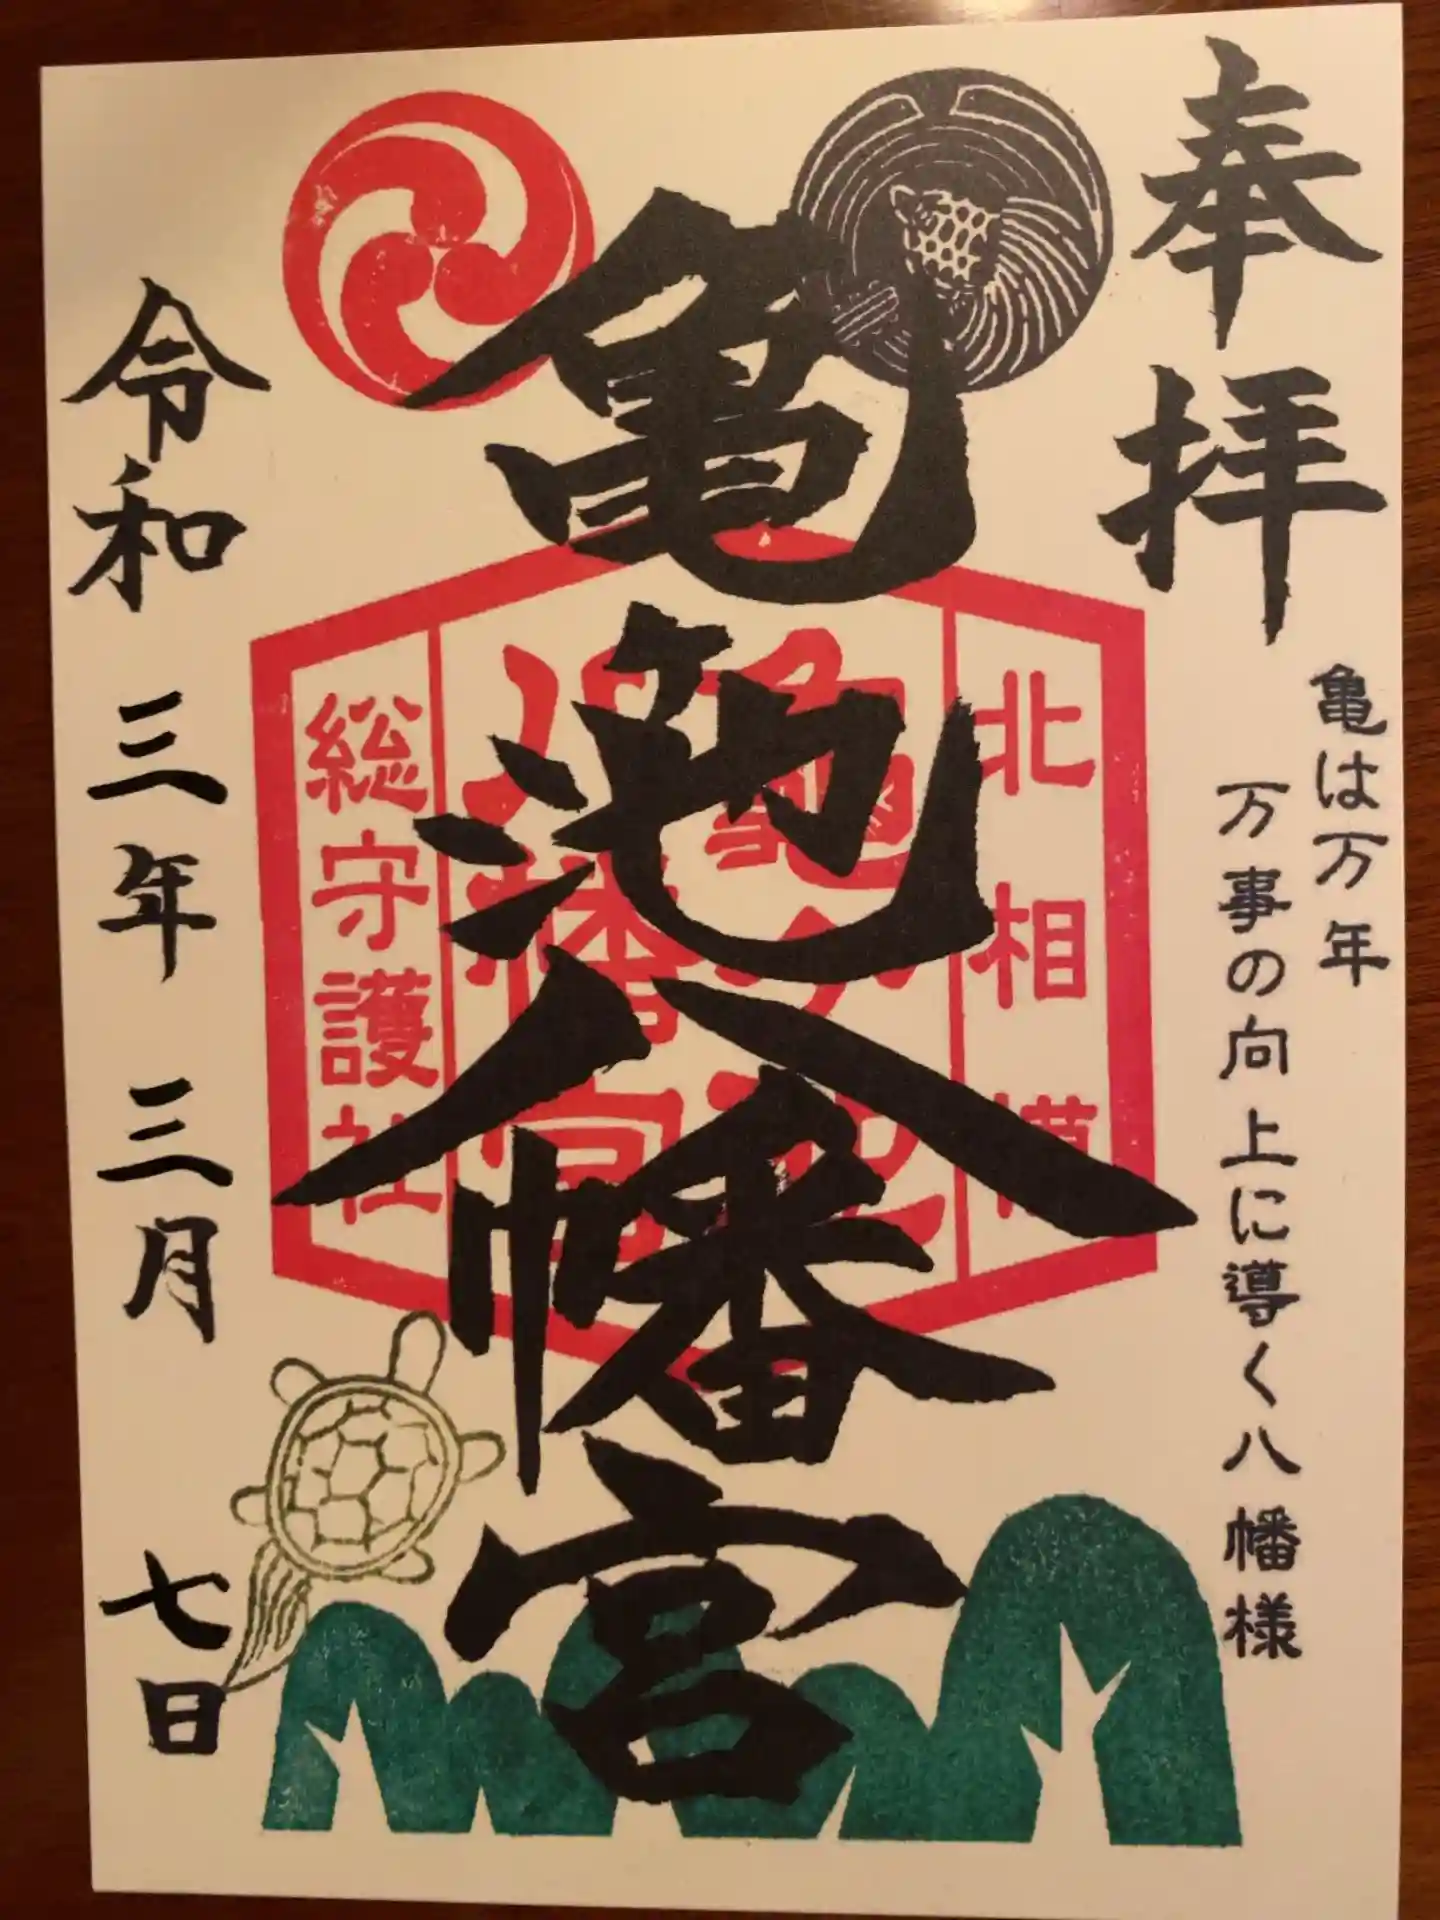 奉拝
亀は万年
万事の向上に導く八幡様
亀池八幡宮
北相模
総守護社
令和三年三月七日